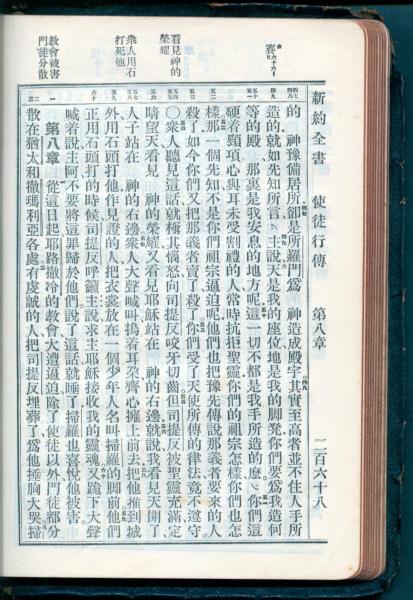 新約全書 使徒行傳 第八章 二百六十八
賽六十六
看見神的
榮耀
衆人用石
打死他
教會被害
門徒分散
的 神豫備居所卻是所羅門爲 神造成殿宇其實至高者並不住人手所
造的就如先知所言主說天是我的座位地是我的脚凳你們要爲我造何
等的殿那裏是我安息的地方呢這一切不都是我手所造的麽你們這
硬着頸項心與耳未受割禮的人常時抗拒聖靈你們的祖宗怎樣你們也怎
樣那一個先知不是你們祖宗逼迫呢他們也把豫先傳說那義者要來的人
殺了如今你們又把那義者賣了殺了你們受了天使所傳的律法竟不遵守
〇衆人聽見這話就極其惱怒向司提反咬牙切齒但司提反被聖靈充滿定
睛望天看見 神的榮耀又看見耶穌站在 神的右邊就說我看見天開了
人子站在 神的右邊衆人大聲喊叫搗着耳朶齊心擁上前去把他推到城
外用石頭打他作見證的人把衣裳放在一個少年人名叫掃羅的脚前他們
正用石頭打的時候司提反呼籲主說求主耶穌接收我的靈魂又跪下大聲
喊着說主阿不要將這罪歸於他們說了這話就睡了掃羅也喜悅他被害
第八章 從這日起耶路撒冷的教會大遭逼迫除了使徒以外門徒都分
散在猶太和撒瑪利亞各處有虔誠的人把司提反埋葬了爲他捶胸大哭掃